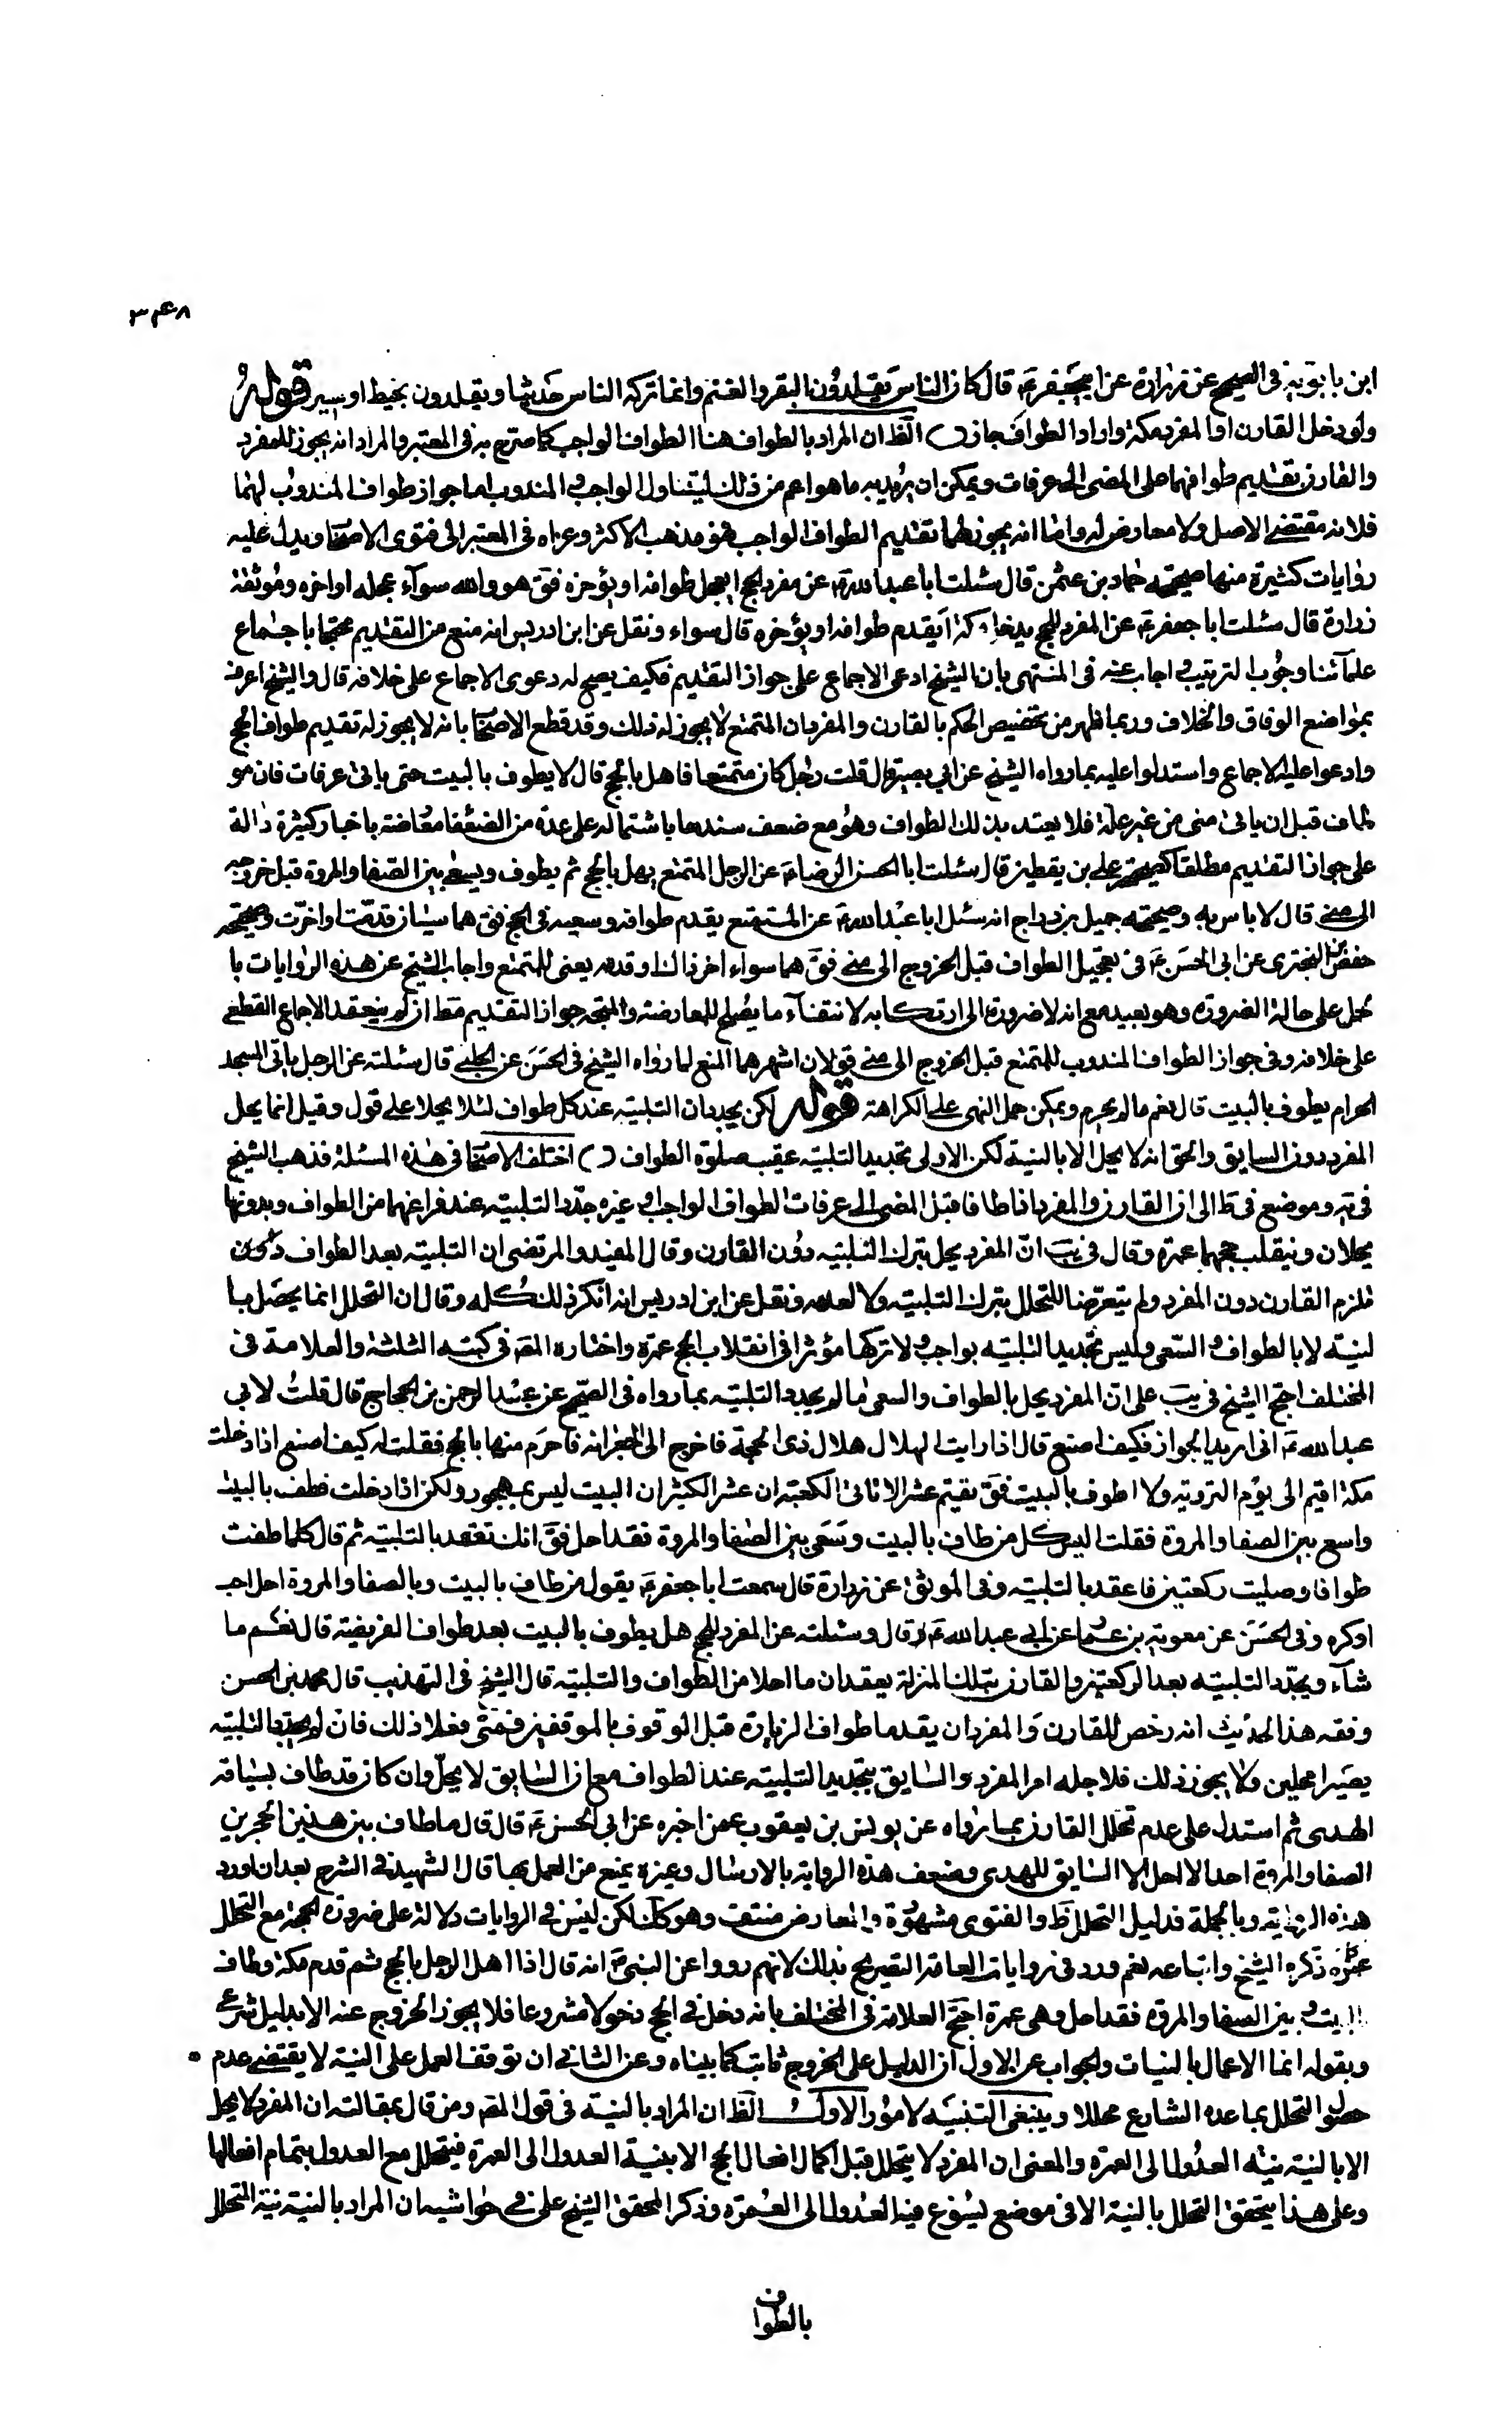 ٣٤٨
ابن بابويه فى الصحيح عن زرارة عن ابيجعفر ع قال كان الناس يقلدون البقر والغنم وانما تركه الناس حديثا ويقلدون بخيط او بسير قوله
ولو دخل القارن او المفرد مكة واراد الطواف جاز الظ ان المراد بالطواف هنا الطواف الواجب كما صرح به فى المعتبر والمراد انه يجوز للمفرد
والقارن تقديم طوافهما على المضى الى عرفات ويمكن ان يريد به ما هو اعم من ذلك ليتناول الواجب والمندوب اما جواز طواف المندوب لهما
فلانه مقتضى الاصل ولا معارض له واما انه يجوز لهما تقديم الطواف الواجب فهو مذهب الاكثر وعزاه فى المعتبر الى فتوى الاصحاب ويدل عليه
روايات كثيرة منها صحيحة حماد بن عثمن قال سئلت ابا عبد الله ع عن مفرد الحج ايعجل طوافه او يؤخره فق هو والله سوآء عجله او اخره وموثقة
زرارة قال سئلت ابا جعفر ع عن المفرد للحج يدخل مكة ايقدم طوافه او يؤخره قال سواء ونقل عن ابن ادريس انه منع من التقديم محتجا باجماع
علمآئنا وجوب الترتيب واجاب عنه فى المنتهى بان الشيخ ادعى الاجماع على جواز التقديم فكيف يصح له دعوى الاجماع على خلافه قال والشيخ اعرف
بمواضع الوفاق والخلاف وربما ظهر من تخصيص الحكم بالقارن والمفرد ان المتمتع لا يجوز له ذلك وقد قطع الاصحاب بانه لا يجوز له تقديم طواف الحج
وادعوا عليه الاجماع واستدلوا عليه بما رواه الشيخ عن ابي بصير قال قلت رجل كان متمتعا فاهل بالحج قال لا يطوف بالبيت حتى ياتى عرفات فان هو
طاف قبل ان ياتى منى من غير علة فلا يعتد بذلك الطواف وهو مع ضعف سندها باشتماله على عدة من الضعفا معارضة باخبار كثيرة دالة
على جواز التقديم مطلقا كصحيحة على بن يقطين قال سئلت ابا الحسن الرضا ع عن الرجل المتمتع يهل بالحج ثم يطوف ويسعى بين الصفا والمروة قبل خروجه
الى منى قال لا باس به وصحيحة جميل بن دراج انه سئل ابا عبد الله ع عن المتمتع يقدم طوافه وسعيه فى الحج فق هما سيان قدمت او اخرت وصحيحة
حفص بن البخترى عن ابى الحسن ع فى تعجيل الطواف قبل الخروج الى منى فق هما سواء اخر ذلك او قدمه يعنى للمتمتع واجاب الشيخ عن هذه الروايات با
لحمل على حالة الضرورة وهو بعيد مع انه لا ضرورة الى ارتكابه لانتفآء ما يصلح للمعارضة والمتجه جواز التقديم مط ان لم ينعقد الاجماع القطعى
على خلافه وفى جواز الطواف المندوب للمتمتع قبل الخروج الى منى قولان اشهرهما المنع لما رواه الشيخ فى الحسن عن الحلبى قال سئلته عن الرجل ياتى المسجد
الحرام يطوف بالبيت قال نعم ما لم يحرم ويمكن حمل النهى على الكراهة قوله لكن يجددان التلبية عند كل طواف لئلا يحلا على قول وقيل انما يحل
المفرد دون السايق والحق انه لا يحل الا بالنية لكن الاولى تجديد التلبية عقيب صلوة الطواف اختلف الاصحاب فى هذه المسئلة فذهب الشيخ
فى يه وموضع فى ط الى ان القارن والمفرد اذا طافا قبل المضى الى عرفات الطواف الواجب او غيره جددا التلبية عند فراغهما من الطواف وبدونها
يحلان وينقلب حجهما عمرة وقال فى يب ان المفرد يحل بترك التلبية دون القارن وقال المفيد والمرتضى ان التلبية بعد الطواف
تلزم القارن دون المفرد ولم يتعرضا للتحلل بترك التلبية ولا لعدمه ونقل عن ابن ادريس انه انكر ذلك كله وقال ان التحلل انما يحصل با
لنية لا بالطواف والسعى وليس تجديد التلبية بواجب ولا تركها مؤثرا فى انقلاب الحج عمرة واختاره المص فى كتبه الثلثة والعلامة فى
المختلف احتج الشيخ فى يب على ان المفرد يحل بالطواف والسعى ما لم يجدد التلبية بما رواه فى الصحيح عن عبد الرحمن بن الحجاج قال قلت لابى
عبد الله ع انى اريد الجوار فكيف اصنع قال اذا رايت الهلال هلال ذى الحجة فاخرج الى الجعرانه فاحرم منها بالحج فقلت له كيف اصنع اذا دخلت
مكة اقيم الى يوم التروية ولا اطوف بالبيت فق تقيم عشرا لا تاتى الكعبة ان عشرا لكثير ان البيت ليس بمهجور ولكن اذا دخلت فطف بالبيت
واسع بين الصفا والمروة فقلت اليس كل من طاف بالبيت وسعى بين الصفا والمروة فقد احل فق انك تعقد بالتلبية ثم قال كلما طفت
طوافا وصليت ركعتين فاعقد بالتلبية وفى الموثق عن زرارة قال سمعت ابا جعفر ع يقول من طاف بالبيت وبالصفا والمروة احل احب
او كره وفى الحسن عن معوية بن عمار عن ابى عبد الله ع قال وسئلته عن المفرد للحج هل يطوف بالبيت بعد طواف الفريضة قال نعم ما
شآء ويجدد التلبية بعد الركعتين والقارن بتلك المنزلة يعقدان ما احلا من الطواف والتلبية قال الشيخ فى التهذيب قال محمد بن الحسن
وفقه هذا الحديث انه رخص للقارن والمفرد ان يقدما طواف الزيارة قبل الوقوف بالموقفين فمتى فعلا ذلك فان لم يجددا التلبية
يصيرا محلين ولا يجوز ذلك فلاجله امر المفرد والسايق بتجديد التلبية عند الطواف مع ان السايق لا يحل وان كان قد طاف لسياقه
الهدى ثم استدل على عدم تحلل القارن بما رواه عن يونس بن يعقوب عمن اخبره عن ابى الحسن ع قال قال ما طاف بين هذين الحجرين
الصفا والمروة احد الا احل الا السايق للهدى وضعف هذه الرواية بالارسال وغيره يمنع من العمل بها قال الشهيد فى الشرح بعد ان اورد
هذه الرواية وبالجملة فدليل التحلل ظ والفتوى مشهورة والمعارض منتف وهو كك لكن ليس فى الروايات دلالة على ضرورة الحجة مع التحلل
عمرة كما ذكره الشيخ واتباعه نعم ورد فى روايات العامة التصريح بذلك لانهم رووا عن النبى ص انه قال اذا اهل الرجل بالحج ثم قدم مكة وطاف
بالبيت وبين الصفا والمروة فقد احل وهى عمرة احتج العلامة فى المختلف بانه دخل فى الحج دخولا مشروعا فلا يجوز الخروج عنه الا بدليل شرعى
وبقوله انما الاعمال بالنيات والجواب عن الاول ان الدليل على الخروج ثابت كما بيناه وعن الثانى ان توقف العمل على النية لا يقتضى عدم
حصول التحلل بما عده الشارع محللا وينبغى التنبيه لامور الاول الظ ان المراد بالنية فى قول المص ومن قال بمقالته ان المفرد لا يحل
الا بالنية نية العدول الى العمرة والمعنى ان المفرد لا يتحلل قبل اكمال افعال الحج الا بنية العدول الى العمرة فيتحلل مع العدول بتمام افعالها
وعلى هذا يتحقق التحلل بالنية الا فى موضع يسوغ فيه العدول الى العمرة وذكر المحقق الشيخ على فى حواشيه ان المراد بالنية نية التحلل
بالطواف